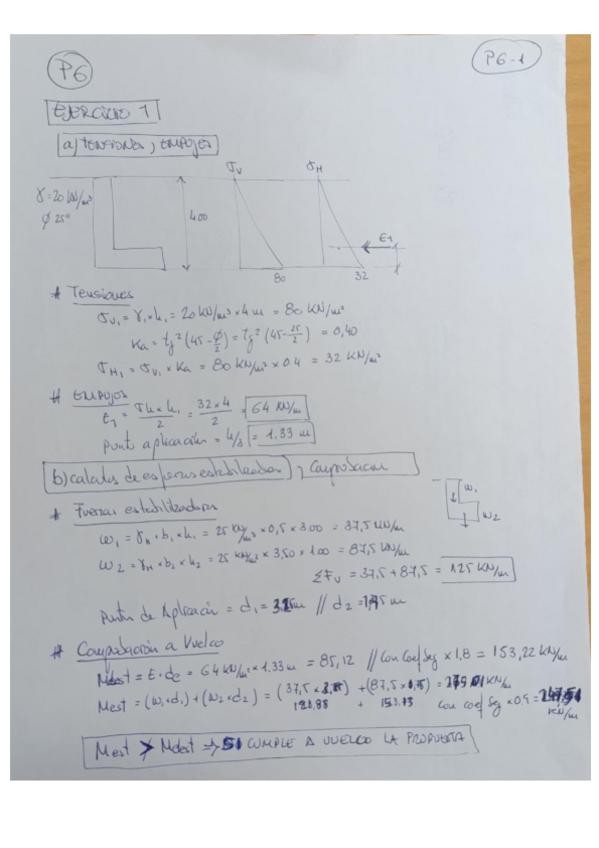 P6
P6-1
EJERCICIO 1
a) TENSIONES y EMPUJES
σv σH
γ=20 KN/m³
ϕ 25º
4.00
E1
80 32
* Tensiones
σv₁ = γ₁ × h₁ = 20 KN/m³ × 4 m = 80 KN/m²
Ka = tg²(45 - ϕ/2) = tg²(45 - 25/2) = 0,40
σH₁ = σv₁ × Ka = 80 KN/m² × 0.4 = 32 KN/m²
* EMPUJES
E₁ = σh × h₁ / 2 = 32 × 4 / 2 = 64 KN/m
Punto aplicación = 4/3 = 1.33 m
b) Calculos de esfuerzos estabilizadores y Comprobación
* Fuerzas estabilizadoras
W₁
W₂
W₁ = γH × b₁ × h₁ = 25 KN/m³ × 0,5 × 3.00 = 37,5 KN/m
W₂ = γH × b₂ × h₂ = 25 KN/m³ × 3,50 × 1.00 = 87,5 KN/m
ΣFv = 37,5 + 87,5 = 125 KN/m
Puntos de Aplicación = d₁ = m // d₂ = m
* Comprobación a Vuelco
Mdest = E · de = 64 KN/m² × 1.33 m = 85,12 // con Coef Seg × 1,8 = 153,22 KN/m
Mest = (W₁ · d₁) + (W₂ · d₂) = (37,5 × ) + (87,5 × ) = KN/m
+ con coef Seg × 0,9 = KN/m
Mest > Mdest ⇒ SI CUMPLE A VUELCO LA PROPUESTA